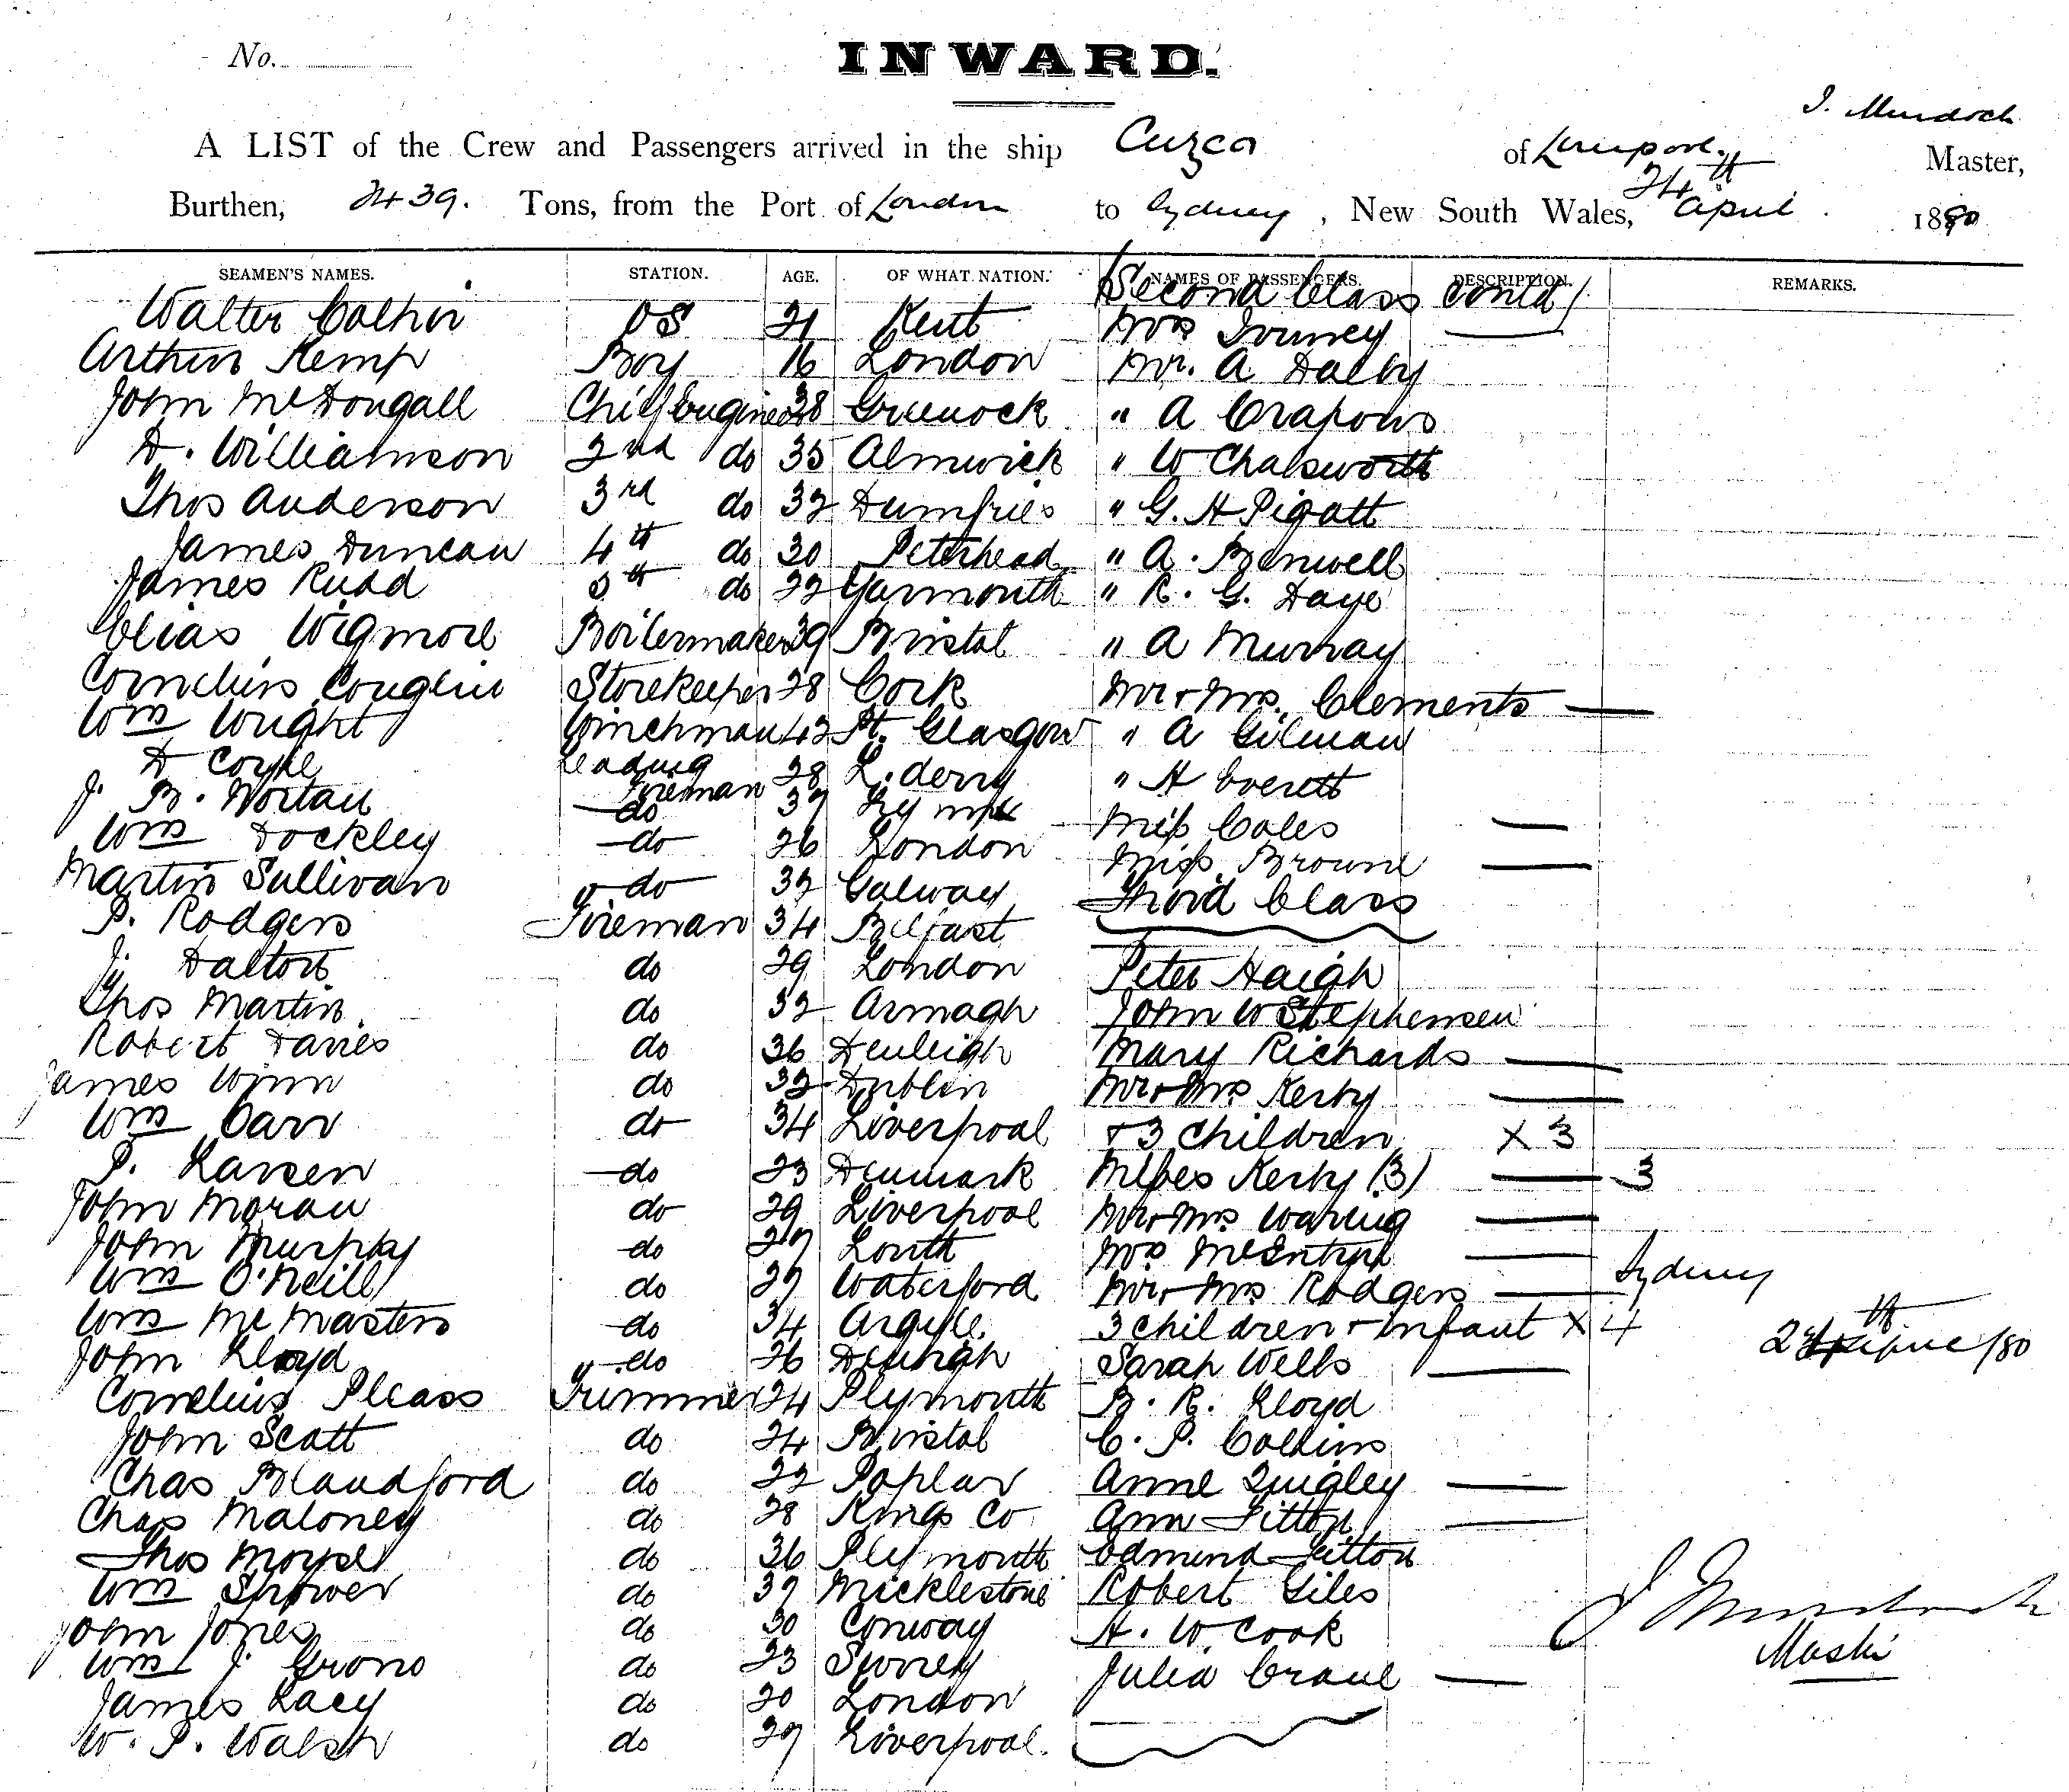 No.
INWARD.
J. Murdoch
A LIST of the Crew and Passengers arrived in the ship Cuzco of Liverpool Master,
Burthen, 2439. Tons, from the Port of London to Sydney, New South Wales, 24th April. 1880
SEAMEN'S NAMES. STATION. AGE. OF WHAT NATION. NAMES OF PASSENGERS. DESCRIPTION. REMARKS.
Second Class contd
Walter OS 21 Kent Mrs
Arthur Kemp Boy 16 London Mr. A Dalby
John McDougall Chief Engineer 38 Greenock " A
D. Williamson 2nd do 35 Alnwick " W Chatsworth
Thos Anderson 3rd do 32 Dumfries " G. H Pigott
James Duncan 4th do 30 Peterhead " A. Benwell
James Rudd 5th do 22 Yarmouth " R. G. Daye
Elias Wigmore Boilermaker 39 Bristol " A Murray
Cornelius Couglin Storekeeper 28 Cork Mr + Mrs. Clements
Wm Wright Winchman 42 Pt. Glasgow " A Gilman
D Coyle Leading Fireman 28 L. derry " H Everett
J. B. do 37 Miss Coles
Wm Dockley do 26 London Miss Brown
Martin Sullivan do 32 Galway Third Class
P. Rodgers Fireman 34 Belfast
J. Dalton do 29 London Peter Haigh
Thos Martin do 32 Armagh John W Stephensen
Robert Davies do 36 Denbigh Mary Richards
James Winn do 32 Dublin Mr + Mrs Kerby
Wm Carr do 34 Liverpool + 3 Children X 3
P. Larsen do 23 Denmark Misses Kerby (3) 3
John Moran do 29 Liverpool Mr + Mrs Waring
John Murphy do 27 Louth Mrs McIntyre
Wm O'Neill do 27 Waterford Mr + Mrs Rodgers Sydney
Wm McMasters do 34 Argyle. 3 Children + Infant X 4
John Lloyd do 26 Denbigh Sarah Wells 24th April/80
Cornelius Pleass Trimmer 24 Plymouth B. R. Lloyd
John Scott do 24 Bristol C. P. Collins
Chas Blandford do 22 Poplar Anne Quigley
Chas Maloney do 28 Kings Co Ann Fitton
Thos Moyse do 36 Plymouth Edmund Fitton
Wm do 37 Micklestone Robert Giles
John Jones do 30 Conway H. W. Cook J Murdoch
Wm J. Grono do 23 Surrey Julia Crane Master
James Lacy do 20 London
W. P. Walsh do 27 Liverpool.